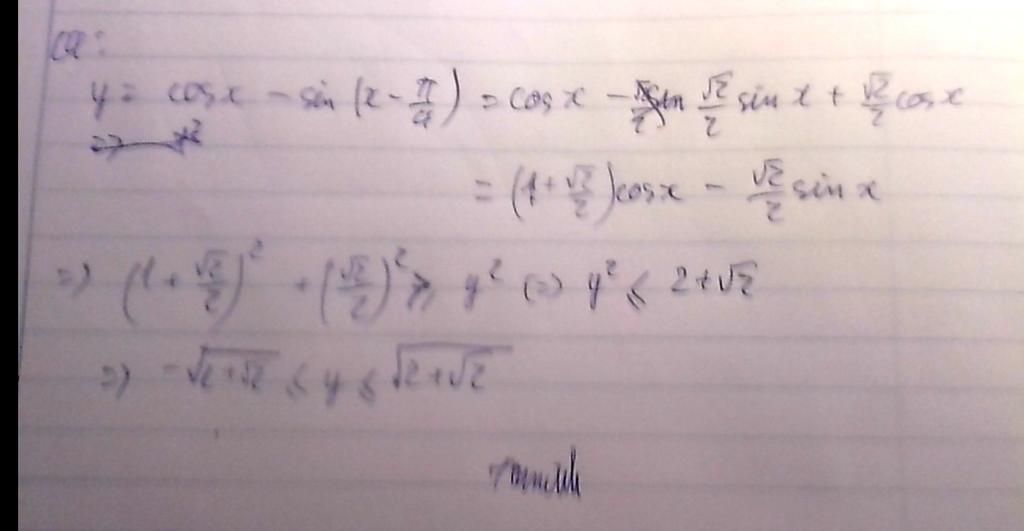 y = cosx - sin(x - π/4) = cosx - √2/2 sin x + √2/2 cosx
= (1 + √2/2)cosx - √2/2 sin x
=> (1 + √2/2)² + (√2/2)² ⩾ y² (=> y² ⩽ 2+√2
=> -√(2+√2) ⩽ y ⩽ √(2+√2)